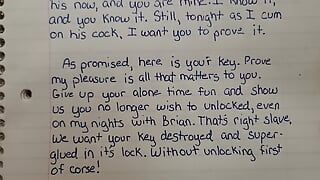 his now, and you are mine. I know it,
and you know it. Still, tonight as I cum
on his cock, I want you to prove it.
As promised, here is your key. Prove
my pleasure is all that matters to you.
Give up your alone time fun and show
us you no longer wish to unlocked, even
on my nights with Brian. That's right slave,
we want your key destroyed and super-
glued in it's lock. Without unlocking first
of corse!